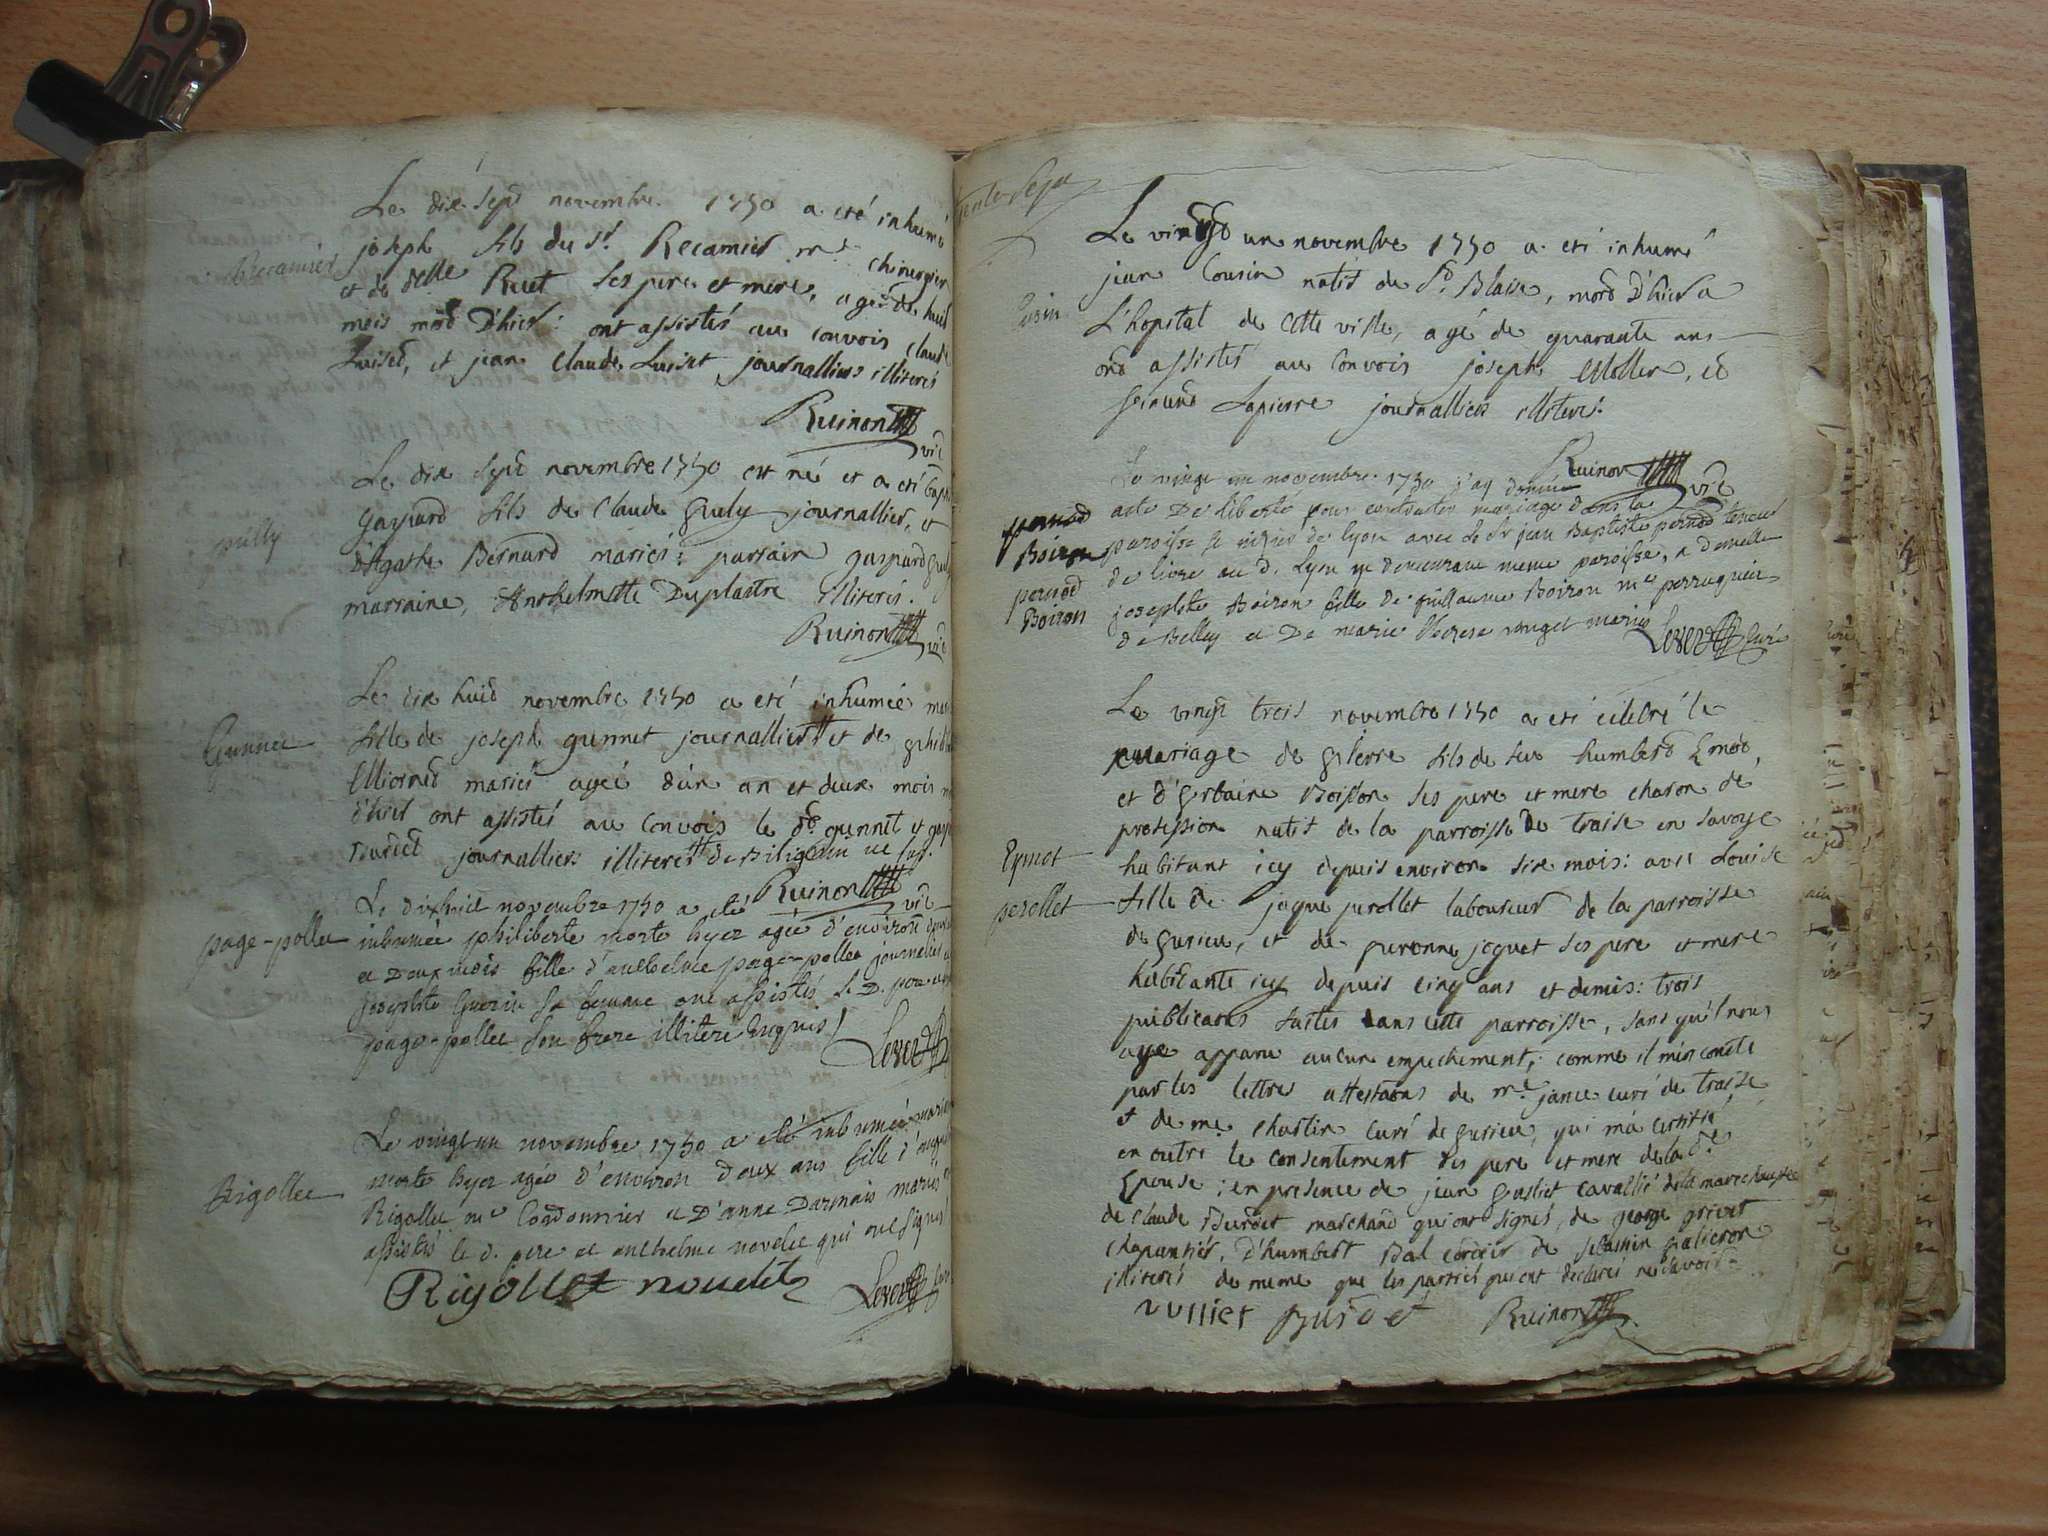 Le dix sept novembre 1750 a eté inhumé
joseph fils du Sr. Recamier me chirurgien
Recamier
et de delle Ruet ses pere et mere, agé de huit
mois mort d'hier: ont assistés au convois claude
Luiset, et jean claude Luiset journalliers illiterés
Ruinon vic
Le dix sept novembre 1750 est né et a eté bapt
gaspard fils de Claude guely journallier, et
d'Agathe Bernard mariés: parrain gaspard
marraine, Anthelmette Duplastre illiterés.
Ruinon vic
Le dix huit novembre 1750 a eté inhumée
Gunnet
fille de joseph gunnet journallier et de
mariés agée d'un an et deux mois
d'hier ont assistés au convois le d. gunnet et
Burdet journalliers illiterés
Ruinon vic
Le dixhuit novembre 1750 a eté
page-pollet
inhumée philiberte morte hyer agée d'environ
et deux mois fille d'anthelme page-pollet journalier
josephte Guerin sa femme ont assistés le D. pere
page-pollet son frere illiteré Enquis
Levet
Le vingt un novembre 1750 a eté inhumée
morte hyer agée d'environ deux ans fille d'
Rigollet
Rigollet me Cordonnier et D'anne Darmais mariés
assistés le d. pere et anthelme novelet qui ont signé
Rigollet nouelet
Levet
Le vingt un novembre 1750 a eté inhumé
jean Cousin natif de St. Blaise, mort d'hier a
Cusin
L'hopital de cette ville, agé de quarante ans
ont assistés au convois joseph Mollier, et
Lapierre journalliers illiterés.
Ruinon vic
Le vingt un novembre 1750 j'ay donné
acte De liberté pour contracter mariage dans la
pernod
Boiron
paroisse St nizier de lyon avec le Sr jean Baptiste pernod teneur
de livre au d. Lyon y demeurant meme paroisse, a demelle
pernod
Boiron
josephte Boiron fille de guillaume Boiron me perruquier
de Belley et De marie Therese rouget mariés
Levet Curé
Le vingt trois novembre 1750 a eté célébré le
mariage de pierre fils de feu humbert Emot,
et d'Urbaine Boisson ses pere et mere charon de
profession natif de la parroisse de traise en savoye
Eymot
habitant icy depuis environ six mois: avec Louise
perollet
fille de jaque perollet laboureur de la parroisse
de gurieu, et de peronne joquet ses pere et mere
habitante icy depuis cinq ans et demis: trois
publications faites dans cette parroisse, sans qu'il nous
aye apparu aucun empechement; comme il m'en conste
par les lettres attestations de me. jance curé de traise
et de me. Chastin Curé de gurieu, qui m'a certifié
en outre le consentement des pere et mere de la de.
Epouse: en presence de jean cavallié de la marechaussée
de claude Burdet marchand qui ont signés, de george grivet
chapuntiér, d'humbert Bal de Sebastin galicron
illiterés de meme que les partiés qui ont declarés ne sçavoir
vulliet Burdet Ruinon